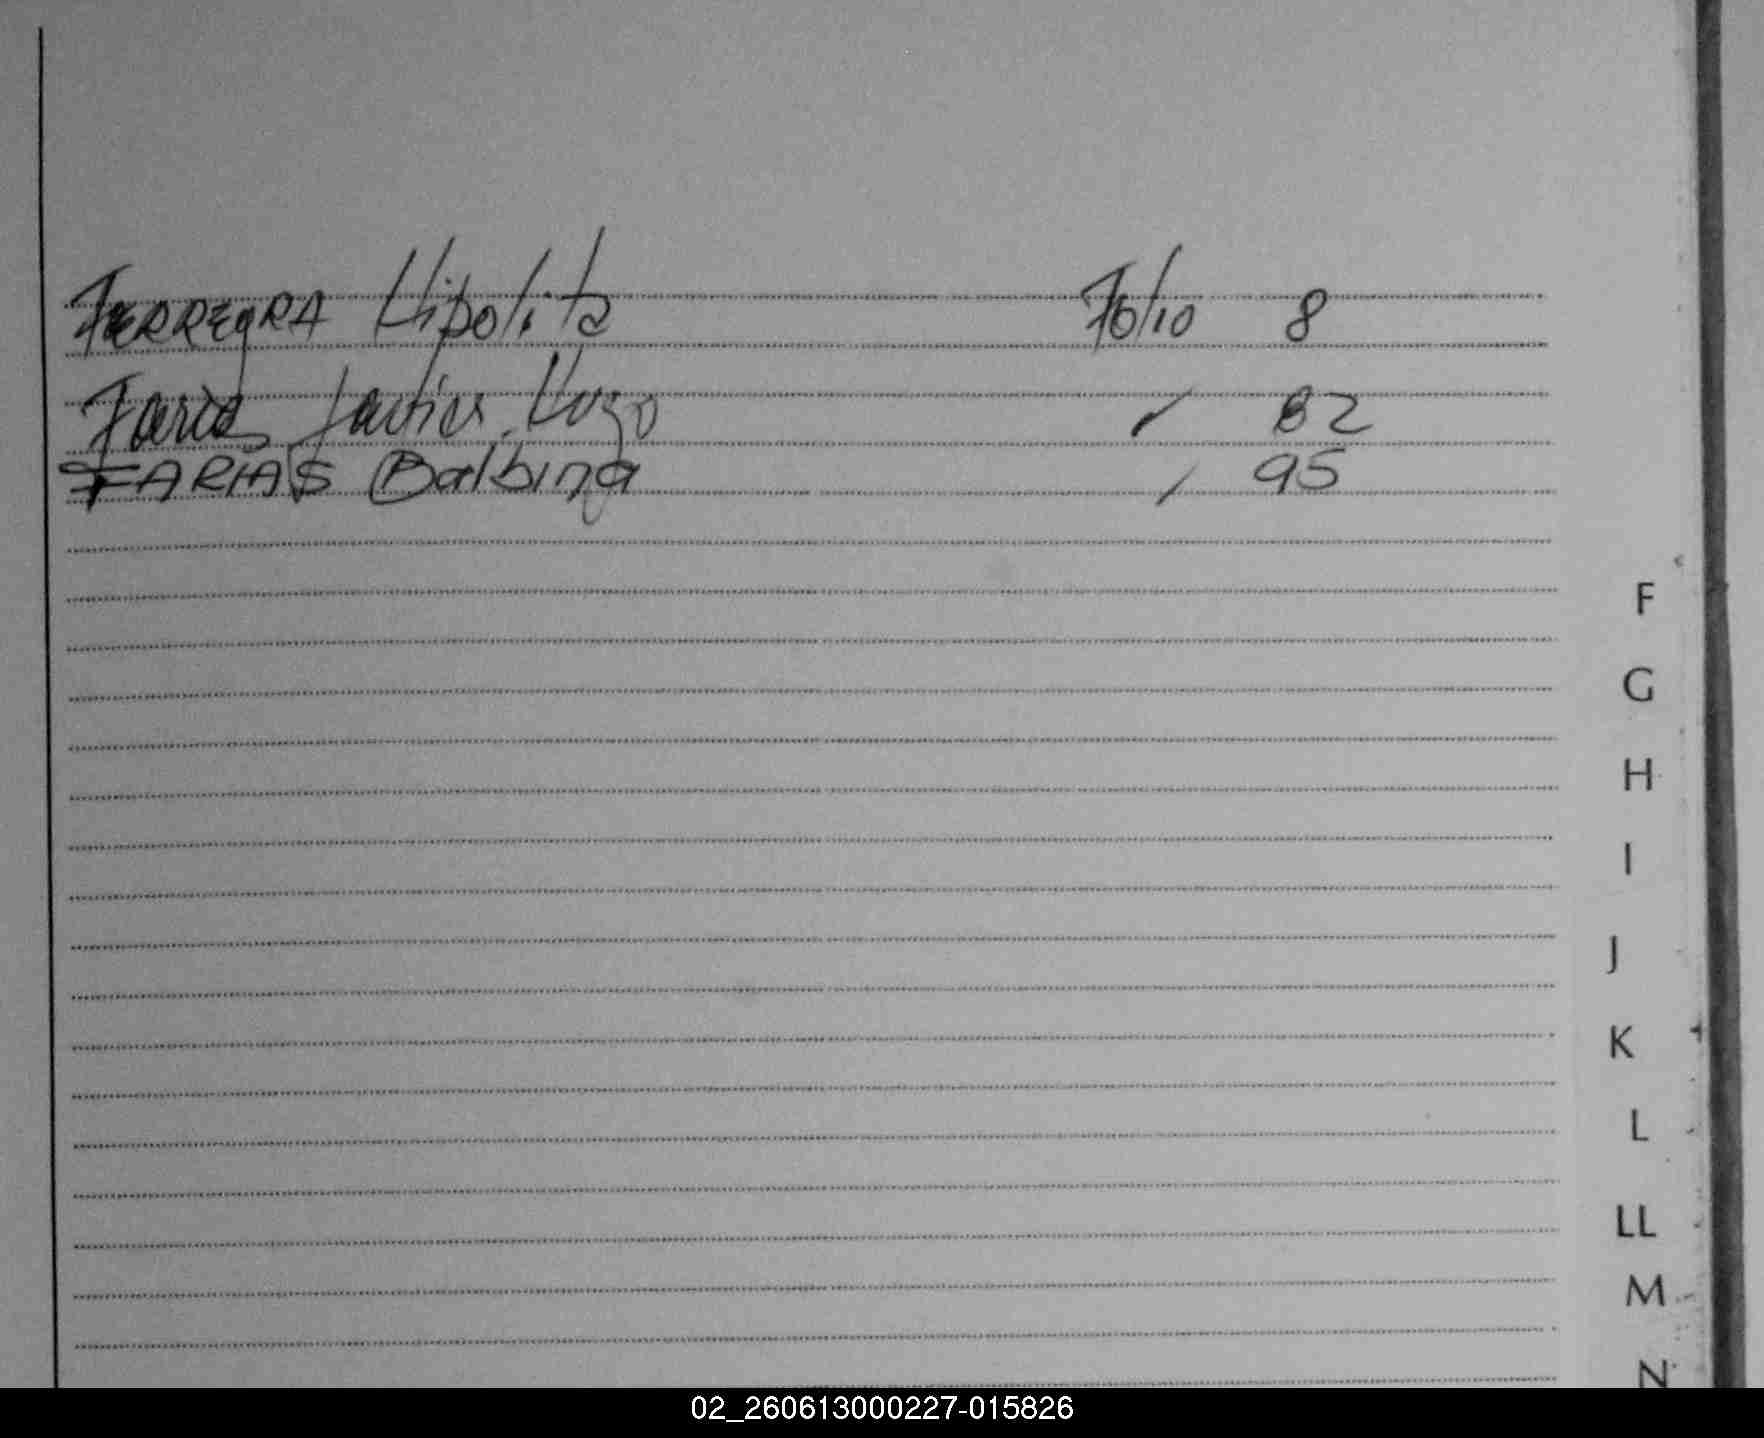 FERREYRA Hipolita Folio 8
Farias Javier Hugo / 82
FARIAS Balbina / 95
F
G
H
I
J
K
L
LL
M
N
02_260613000227-015826